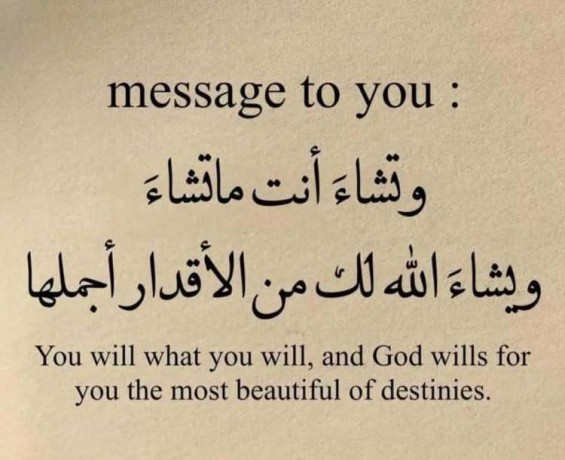 message to you :
وتشاءَ أنت ماتشاءَ
ويشاءَ الله لك من الأقدار أجملها
You will what you will, and God wills for
you the most beautiful of destinies.